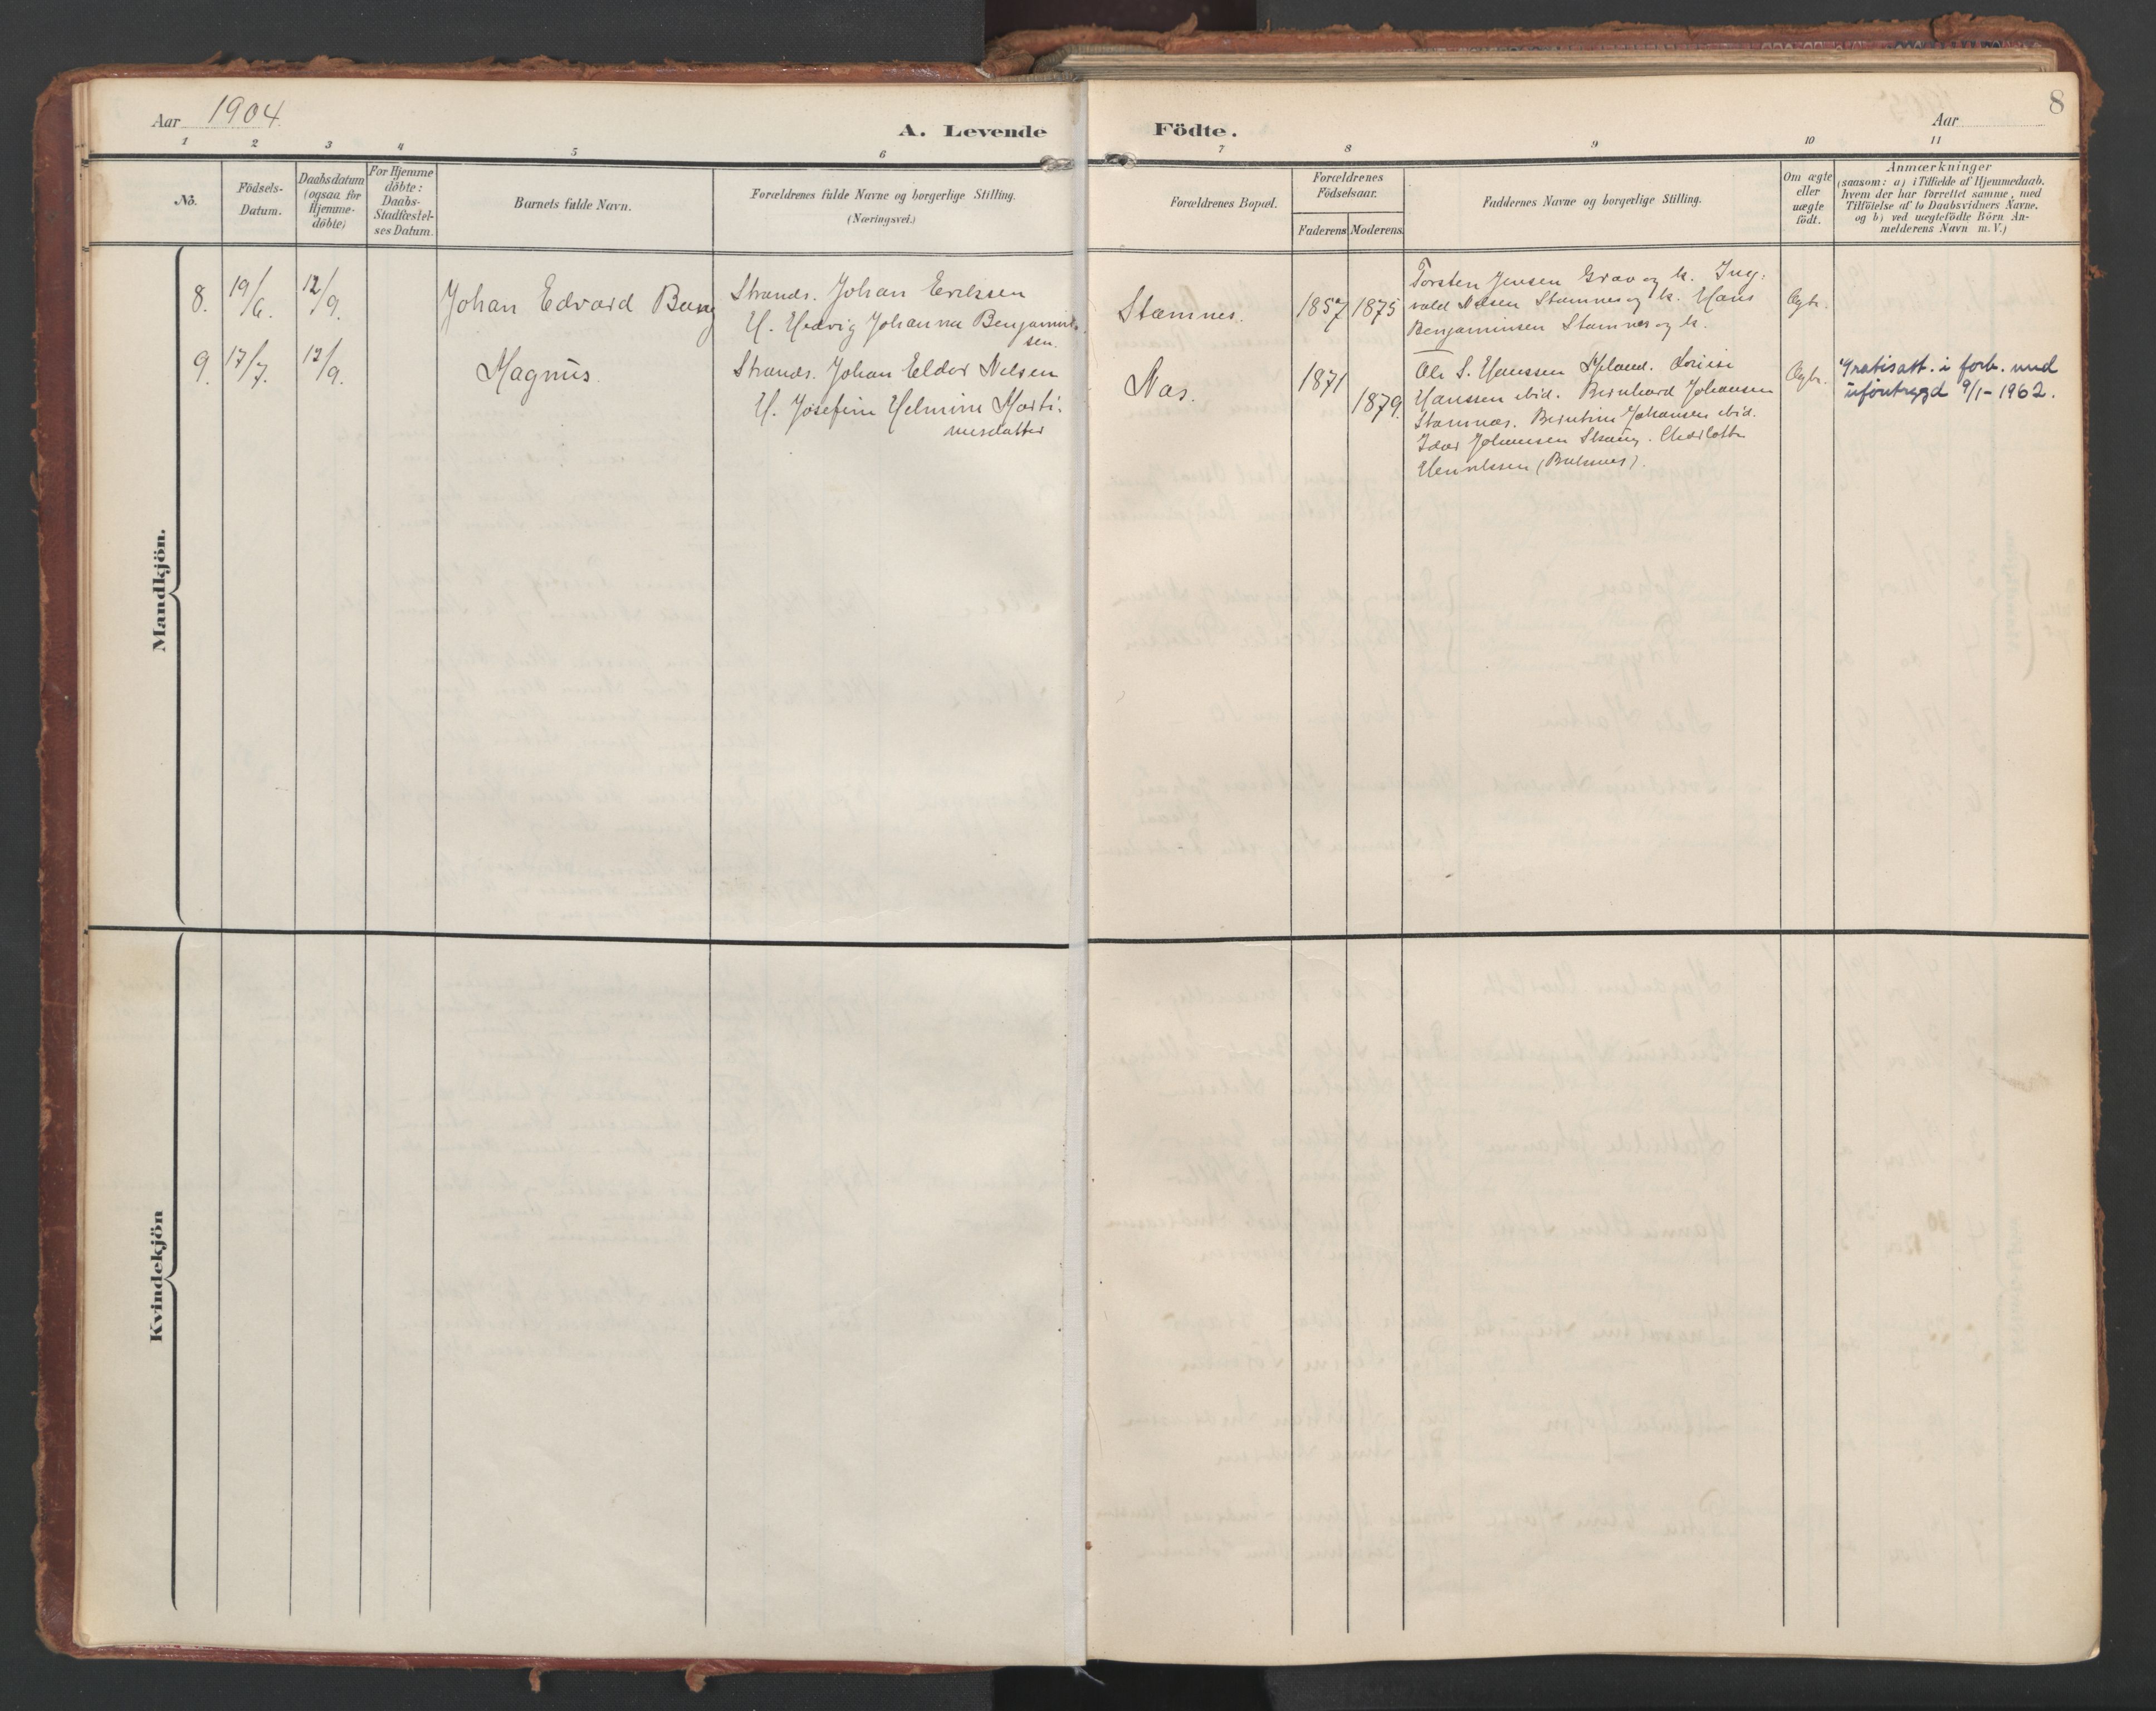 Aar 1904.
A. Levende Födte.
Aar
8
1 2 3 4 5 6 7 8 9 10 11
No.
Födsels-
Datum.
Daabsdatum
(ogsaa for
Hjemme-
döbte)
For Hjemme
döbte:
Daabs-
Stadfæstel-
ses Datum.
Barnets fulde Navn.
Forældrenes fulde Navne og borgerlige Stilling.
(Næringsvei.)
Forældrenes Bopæl.
Forældrenes
Födselsaar.
Faderens
Moderens
Faddernes Navne og borgerlige Stilling.
Om ægte
eller
uægte
födt.
Anmærkninger
(saasom: a) i Tilfælde af Hjemmedaab.
hvem der har forrettet samme, med
Tilföielse af to Daabsvidners Navne.
og b) ved uægtefödte Börn An-
melderens Navn m. V.)
Mandkjön.
8. 19/6. 12/9.
Johan Edvard Bang
Strands. Johan Eriksen
H. Hedvig Johanna Benjamin-
sen.
Stamnes.
1857 1875
Torsten Jensen Grav og k. Ing-
vald Nilsen Stamnes og k. Hans
Benjaminsen Stamnes og k.
Ægte.
9. 17/7. 12/9.
Magnus.
Strands. Johan Eldor Nilsen
H. Josefine Helmine Marti-
nusdatter
Nas.
1871
1879.
Ole S. Hanssen
Hanssen ibid. Bernhard Johansen
Stamnæs. Berntine Johansen ibid.
Johansen Charlotte
Henriksen
Ægte.
Gratisatt. i forb. med
uföretrygd 9/1-1962.
Kvindekjön